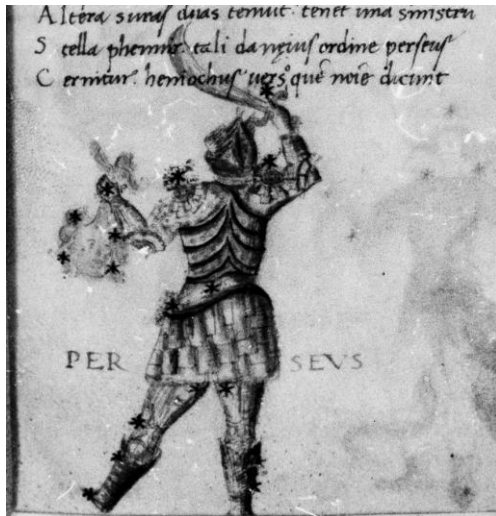 A ltera suras duas tenuit. tenet una sinistru
S tella phemur. tali danęius ordine perseus
C ernitur. heniochus versº quē noīe dicunt
PER SEVS